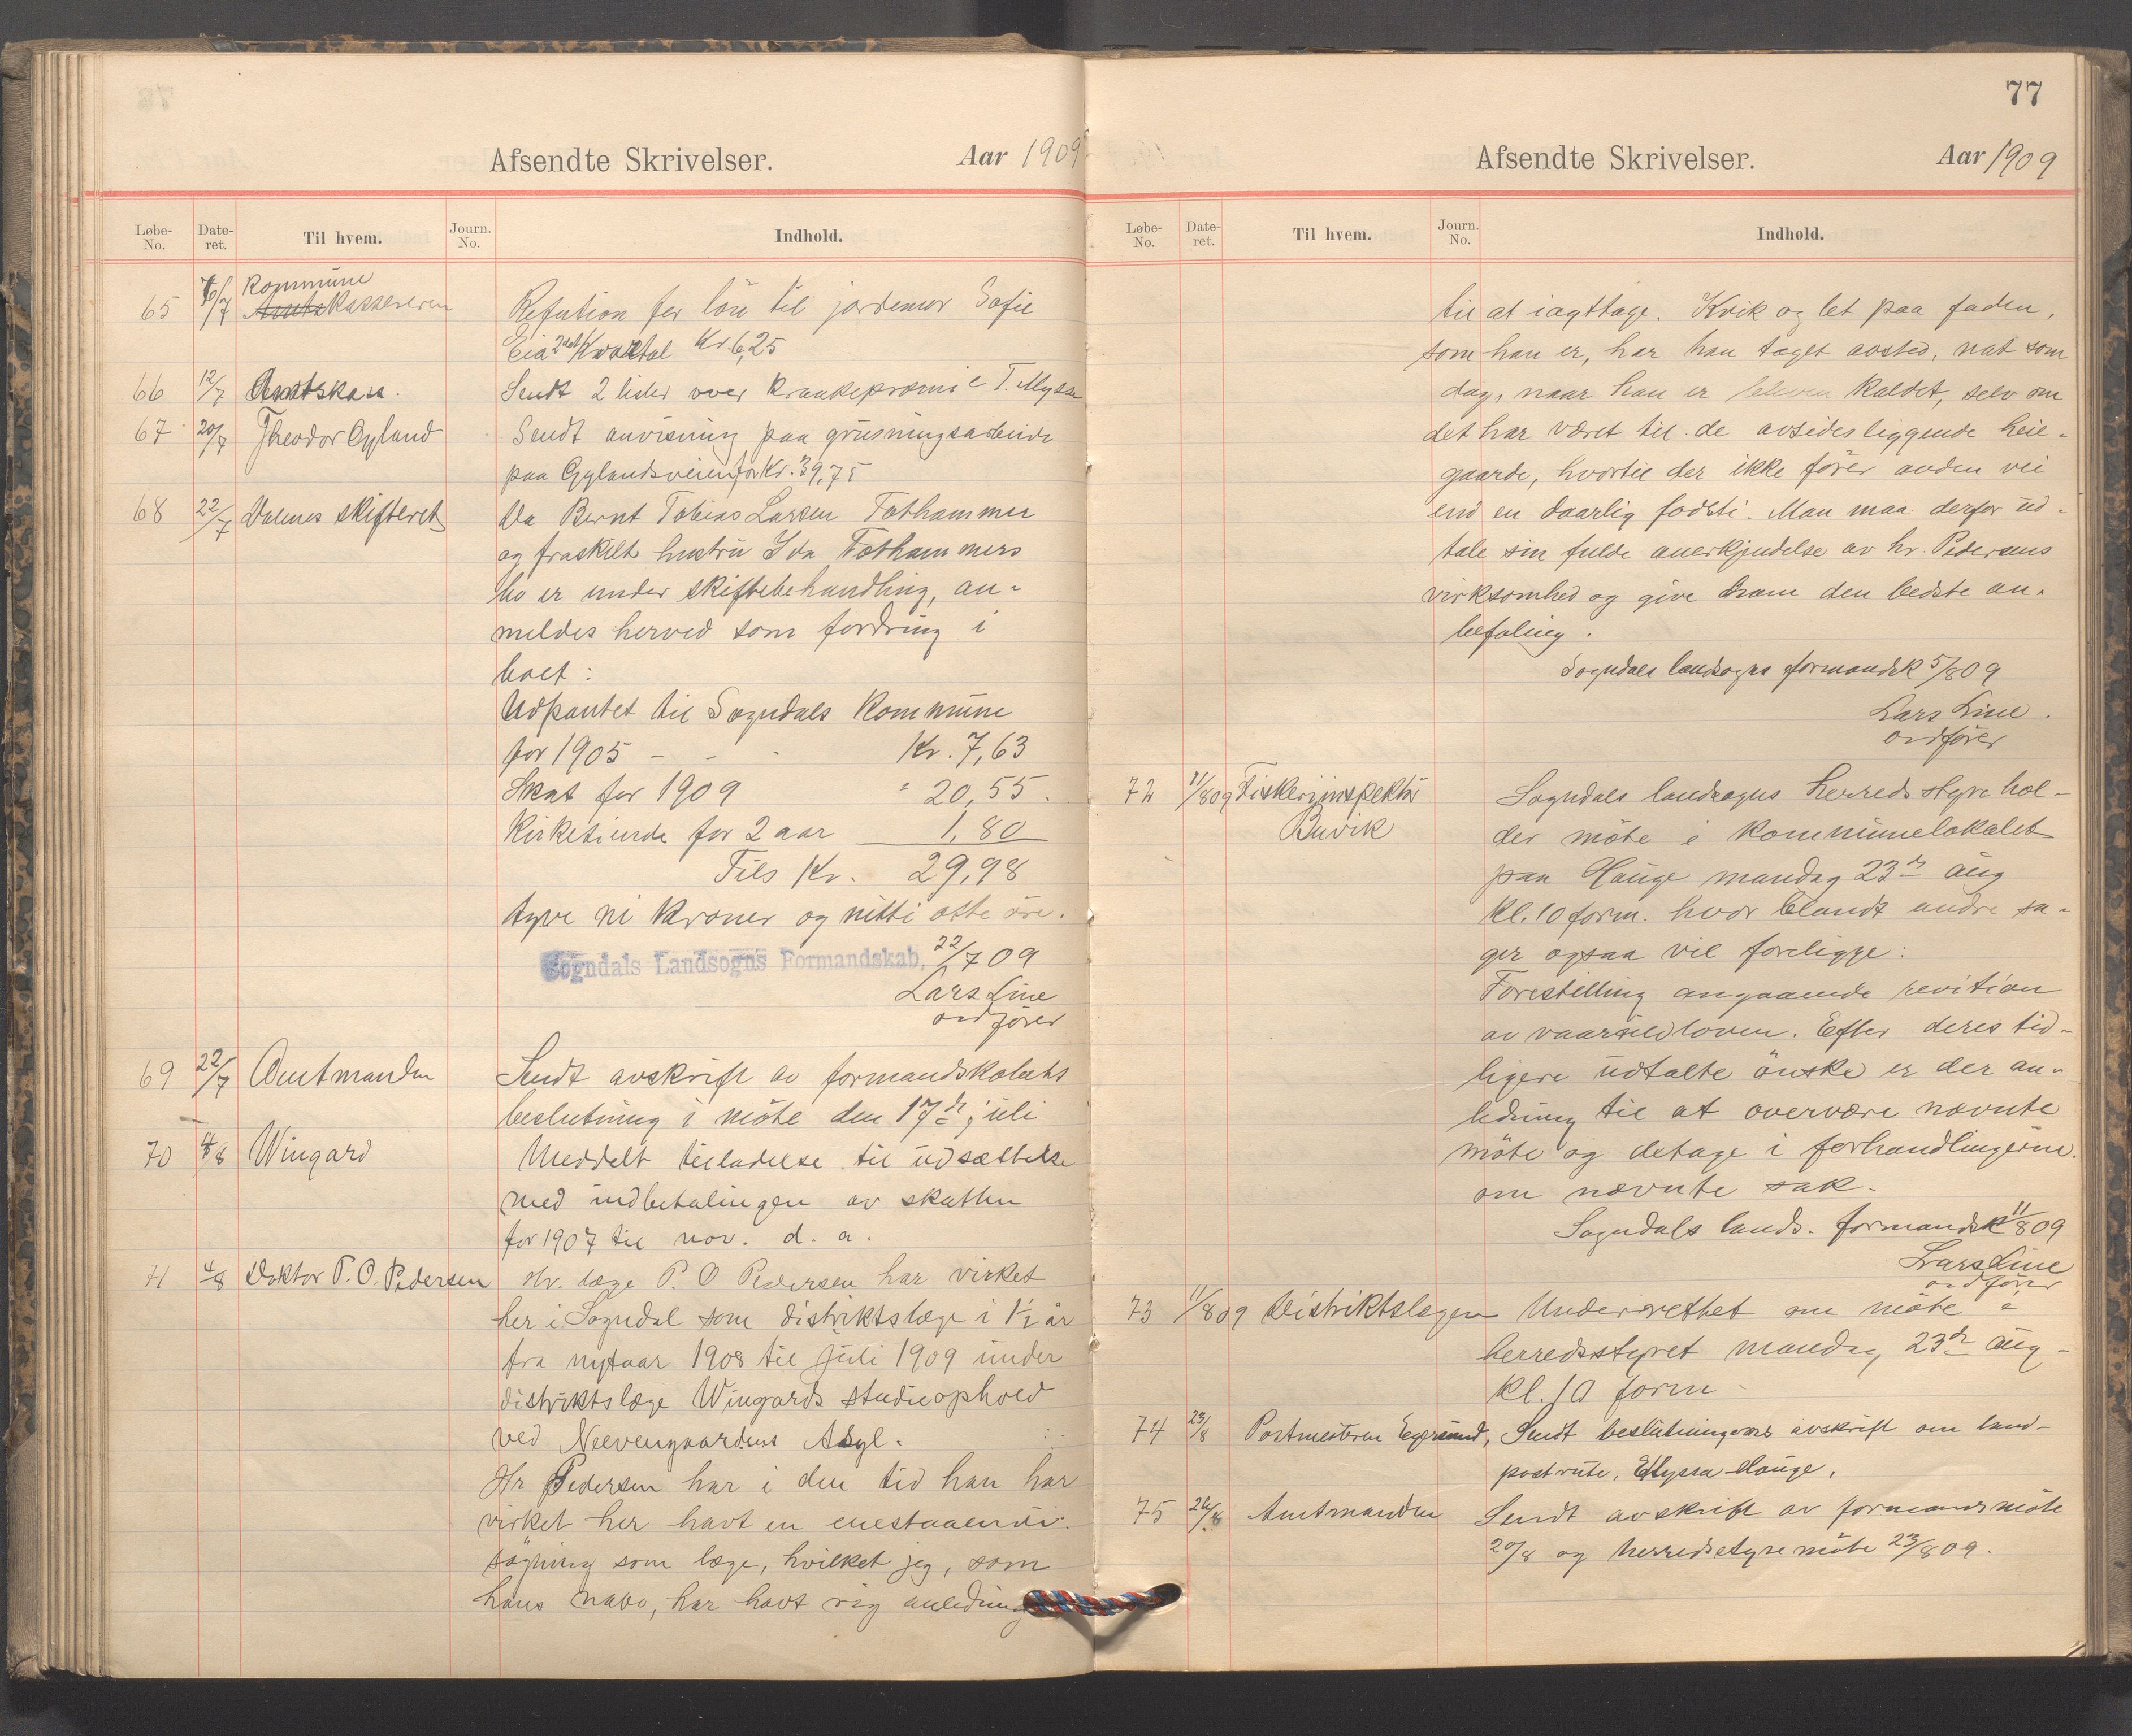 Afsendte Skrivelser. Aar 1909
Løbe-No. Date-ret. Til hvem. Journ. No. Indhold.
65 10/7 Kommune
Kassereren Refution for løn til jordemor Sofie
Eia 2det Kvartal Kr. 6,25
66 12/7 Amtskass. Sendt 2 lister over Kraakepræmie T. Mysse
67 20/7 Theodor Gyland Sendt anvisning paa grusningsarbeide
paa Gylandsveien for Kr. 39,75
68 22/7 Dalenes skifteret Da Bernt Tobias Larsen Tothammer
og fraskilt hustru Ida Tothammers
bo er under skiftebehandling, an-
meldes herved som fordring i
boet:
Udpantet til Sogndals Kommune
for 1905 - - - Kr. 7,63
Skat for 1909 " 20,55.
Kirketiende for 2 aar 1,80
Tils Kr. 29,98
tyve ni kroner og nitti otte øre.
Sogndals Landsogns Formandskab, 22/7 09
Lars Line
ordfører
69 22/7 Amtmanden Sendt avskrift av formandskabets
beslutning i møte den 17de juli
70 4/8 Wingard Meddelt tilladelse til udsættelse
med indbetalingen av skatten
for 1907 til nov. d. a.
71 4/8 Doktor P. O. Pedersen Hr. læge P. O Pedersen har virket
her i Sogndal som distriktslæge i 1½ år
fra nytaar 1908 til Juli 1909 under
distriktslæge Wingards studieophold
ved Neevengaardens Asyl.
Hr Pedersen har i den tid han har
virket her havt en enestaaende
søgning som læge, hvilket jeg, som
hans nabo, har havt rig anledning
77
Afsendte Skrivelser. Aar 1909
Løbe-No. Date-ret. Til hvem. Journ. No. Indhold.
til at iagttage. Kvik og let paa foden,
som han er, har han taget avsted, nat som
dag, naar han er bleven kaldet, selv om
det har været til de avsidesliggende heie-
gaarde, hvortil der ikke fører anden vei
end en daarlig fodsti. Man maa derfor ud-
tale sin fulde anerkjendelse av hr. Pedersens
virksomhed og give ham den bedste an-
befaling.
Sogndals landsogns formandsk 5/8 09
Lars Line.
ordfører
72 11/8 09 Fiskeriinspektør Sogndals landsogns herredsstyre hol-
Buvik der møte i kommunelokalet
paa Hauge mandag 23de aug
kl. 10 form. hvor blandt andre sa-
ger ogsaa vil foreligge:
Forestilling angaaende revition
av vaarsildloven. Efter deres tid-
ligere udtalte ønske er der an-
ledning til at overvære nævnte
møte og detage i forhandlingerne
om nævnte sak.
Sogndals lands. formandsk 11/8 09
Lars Line
ordfører
73 11/8 09 Distriktslægen Underrettet om møte i
herredsstyret mandag 23de aug-
kl. 10 form
74 23/8 Postmesteren Egersund, Sendt beslutningens avskrift om land-
postrute, Elyssa Hauge,
75 24/8 Amtmanden Sendt avskrift av formandsmøte
20/8 og herredsstyremøte 23/8 09.